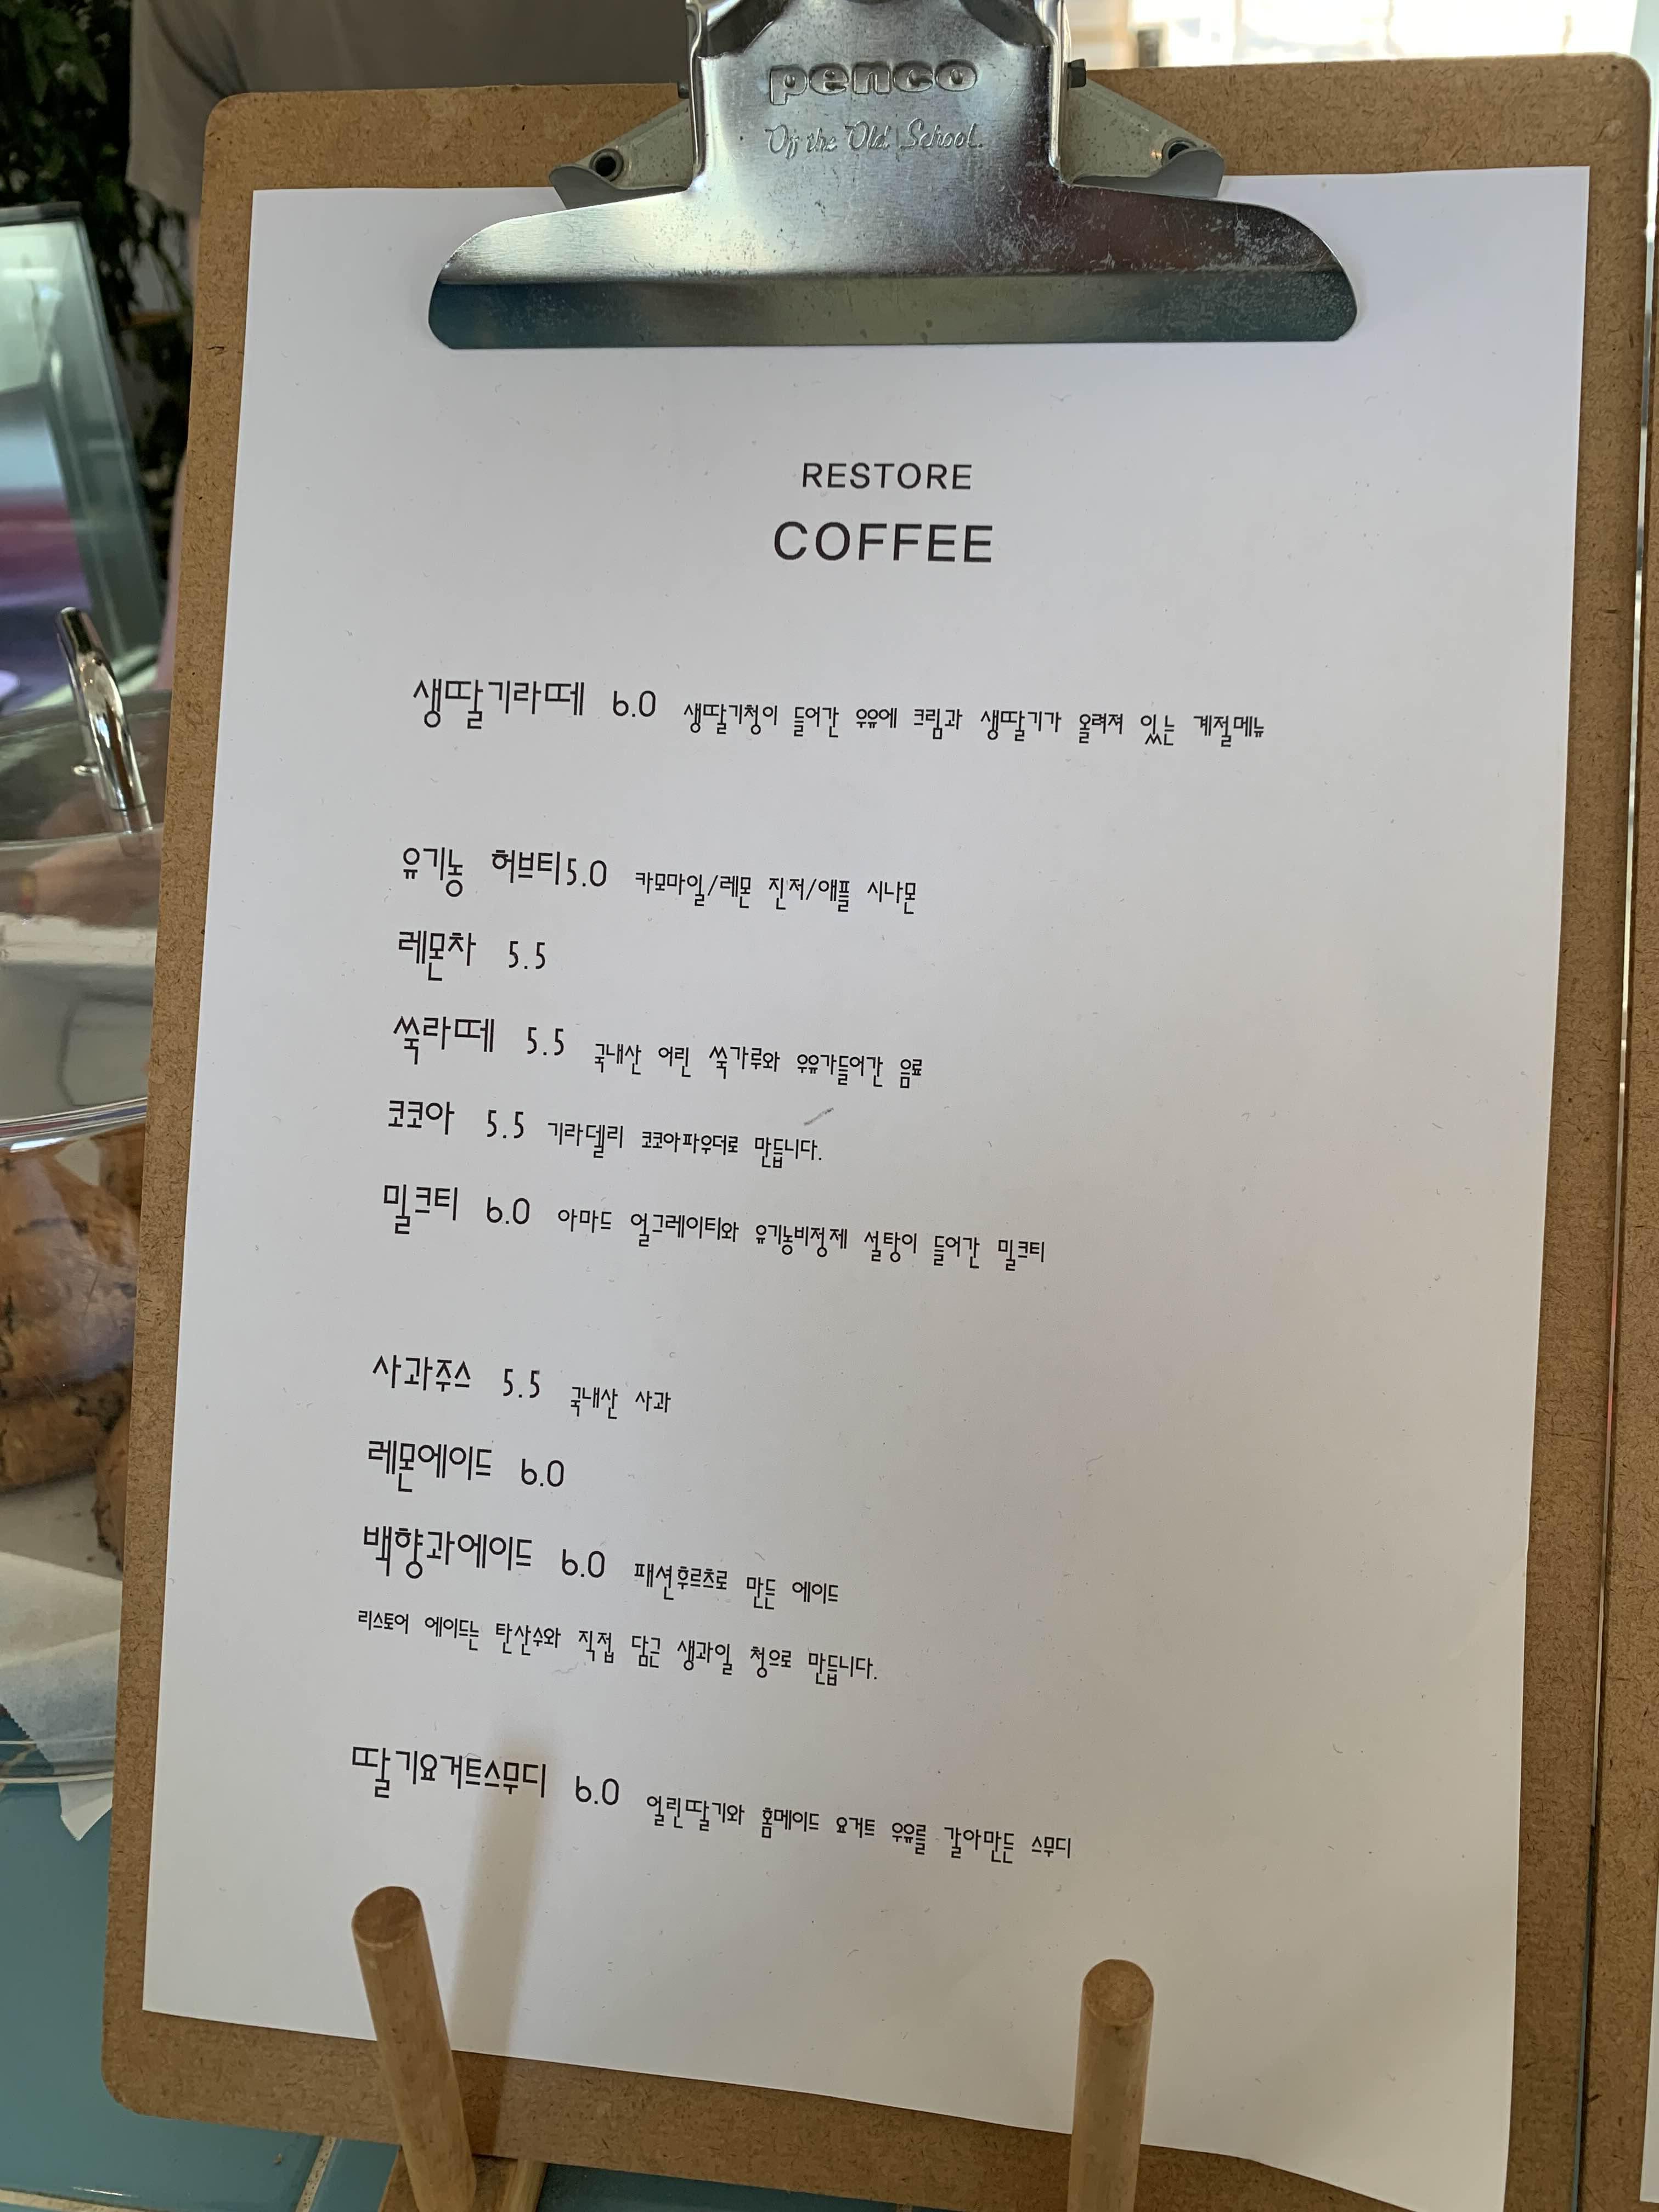 penco
Off the Old School.
RESTORE
COFFEE
생딸기라떼 6.0 생딸기청이 들어간 우유에 크림과 생딸기가 올려져 있는 계절메뉴
유기농 허브티5.0 카모마일/레몬 진저/애플 시나몬
레몬차 5.5
쑥라떼 5.5 국내산 어린 쑥가루와 우유가들어간 음료
코코아 5.5 기라델리 코코아파우더로 만듭니다.
밀크티 6.0 아마드 얼그레이티와 유기농비정제 설탕이 들어간 밀크티
사과주스 5.5 국내산 사과
레몬에이드 6.0
백향과에이드 6.0 패션후르츠로 만든 에이드
리스토어 에이드는 탄산수와 직접 담근 생과일 청으로 만듭니다.
딸기요거트스무디 6.0 얼린딸기와 홈메이드 요거트 우유를 갈아만든 스무디